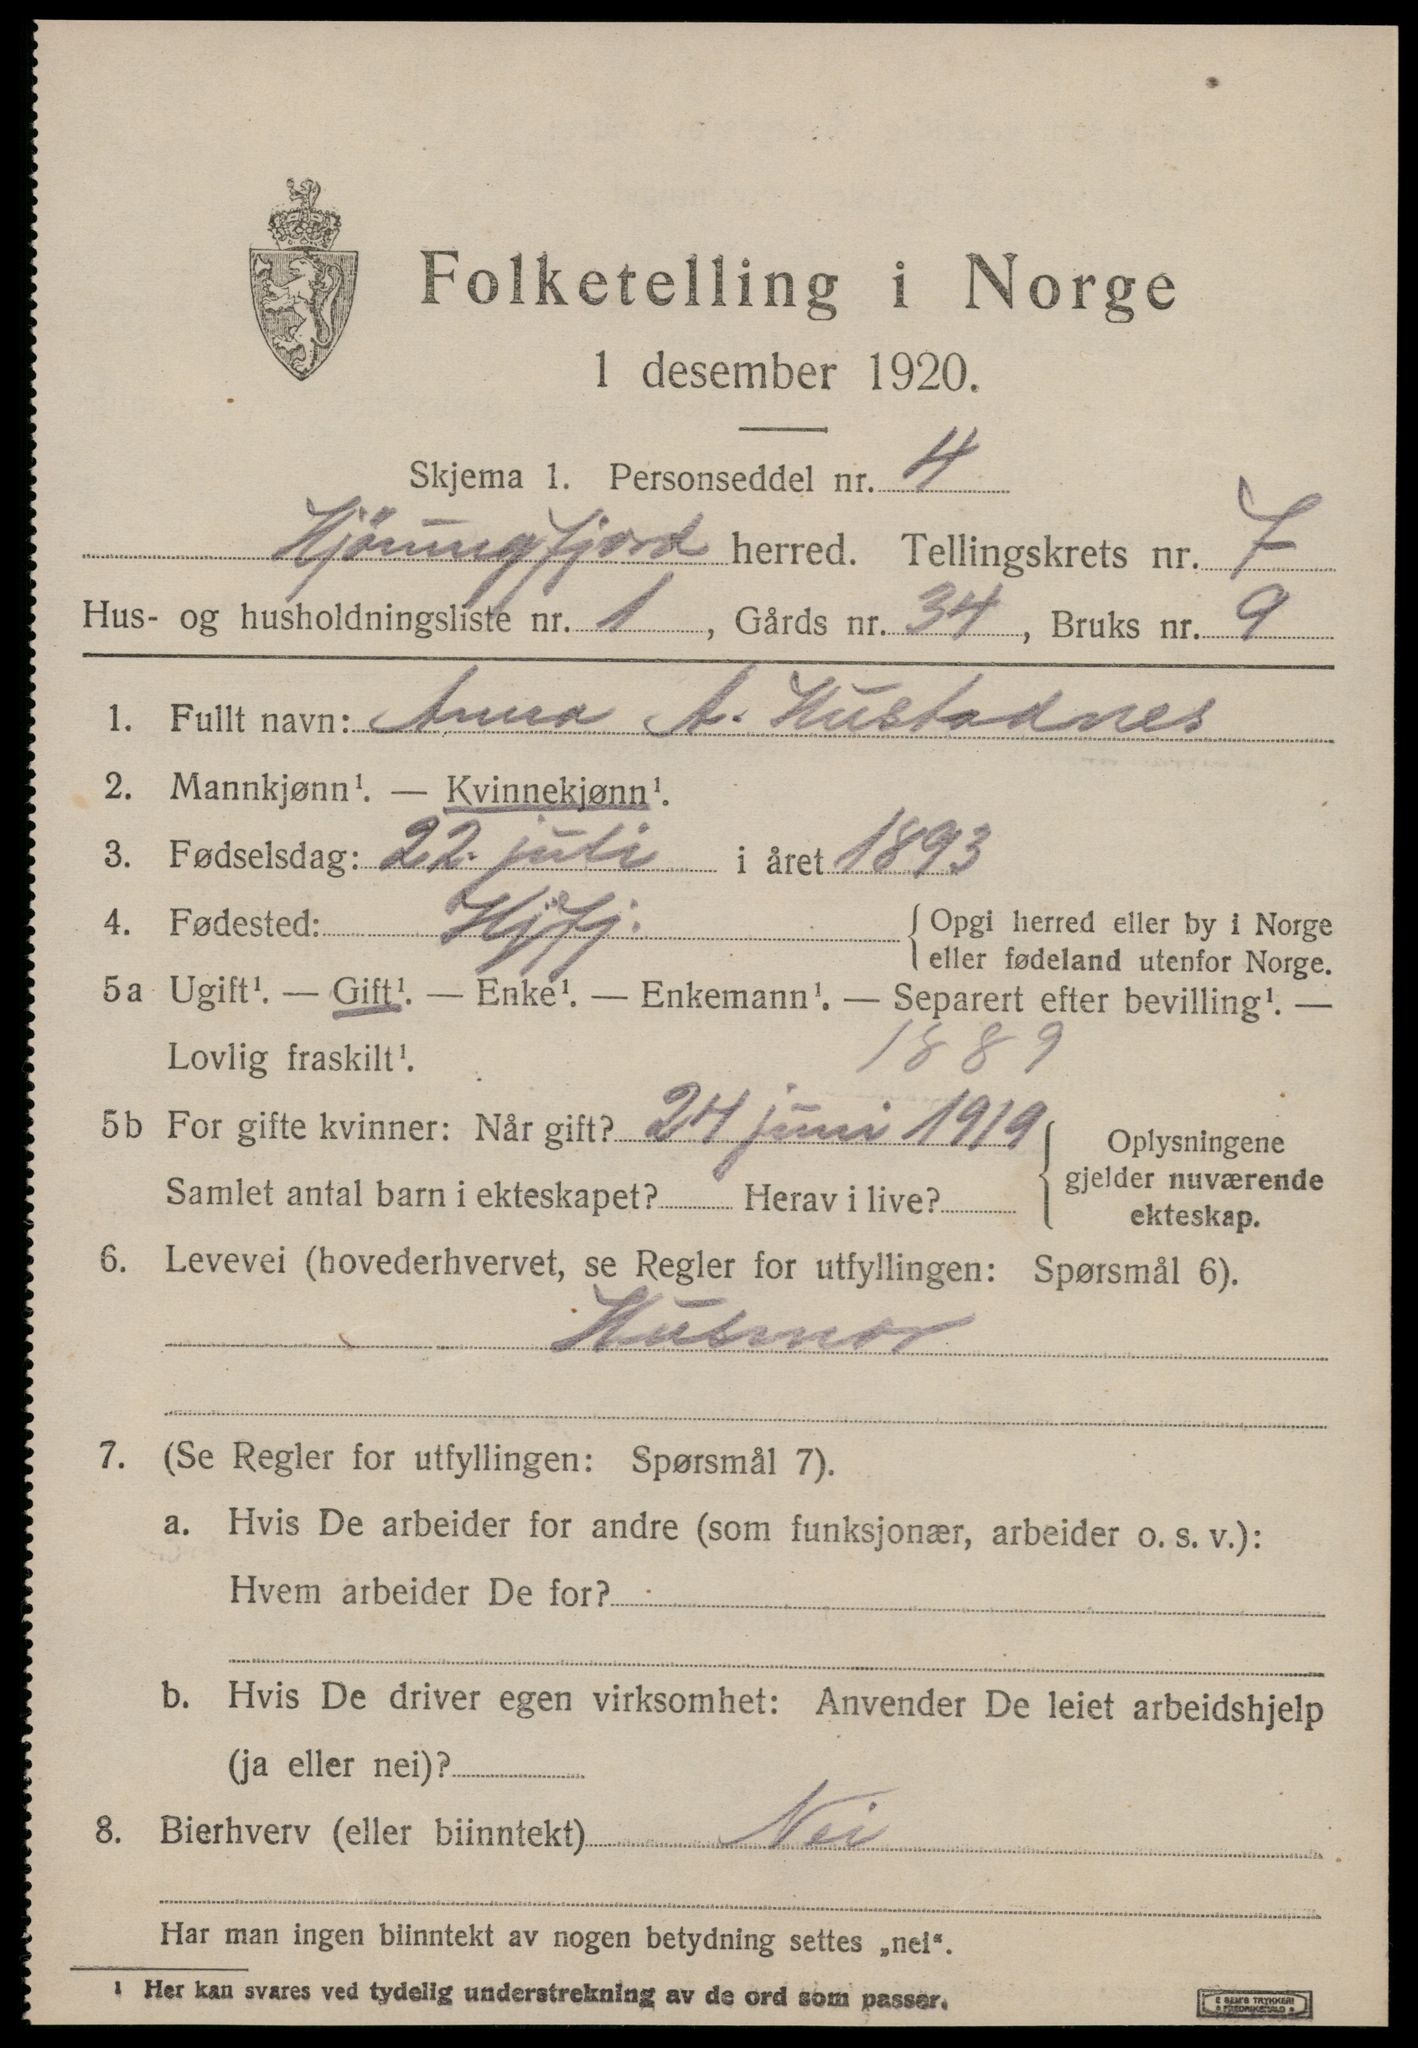 Folketelling i Norge
1 desember 1920.
Skjema 1. Personseddel nr. 4
Hjörungfjord herred. Tellingskrets nr. 7
Hus- og husholdningsliste nr. 1, Gårds nr. 34, Bruks nr. 9
1. Fullt navn: Anna A. Hustadnes
2. Mannkjønn¹. — Kvinnekjønn¹.
3. Fødselsdag: 22. juli i året 1893
4. Fødested: Hjfj. { Opgi herred eller by i Norge
eller fødeland utenfor Norge.
5a Ugift¹. — Gift¹. — Enke¹. — Enkemann¹. — Separert efter bevilling¹. —
Lovlig fraskilt¹. 1889
5b For gifte kvinner: Når gift? 24 juni 1919
Samlet antal barn i ekteskapet? Herav i live?
{ Oplysningene
gjelder nuværende
ekteskap.
6. Levevei (hovederhvervet, se Regler for utfyllingen: Spørsmål 6).
Husmor
7. (Se Regler for utfyllingen: Spørsmål 7).
a. Hvis De arbeider for andre (som funksjonær, arbeider o. s. v.):
Hvem arbeider De for?
b. Hvis De driver egen virksomhet: Anvender De leiet arbeidshjelp
(ja eller nei)?
8. Bierhverv (eller biinntekt) Nei
Har man ingen biinntekt av nogen betydning settes „nei“.
¹ Her kan svares ved tydelig understrekning av de ord som passer.
E SEM'S TRYKKERI
FREDRIKSHALD